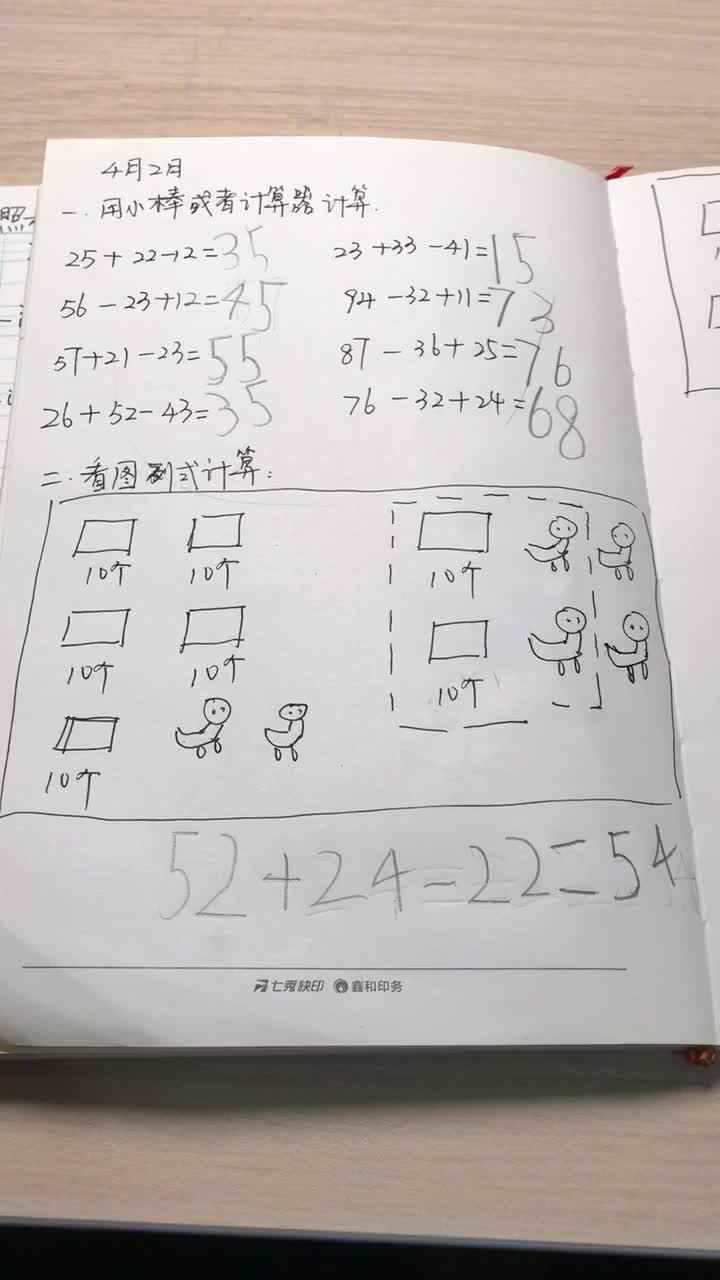 4月2日
一.用小棒或者计算器计算.
25+22-12=35 23+33-41=15
56-23+12=45 94-32+11=73
57+21-23=55 87-36+25=76
26+52-43=35 76-32+24=68
二.看图列式计算:
10个 10个 10个
10个 10个 10个
10个
52+24-22=54
七彩快印 鑫和印务